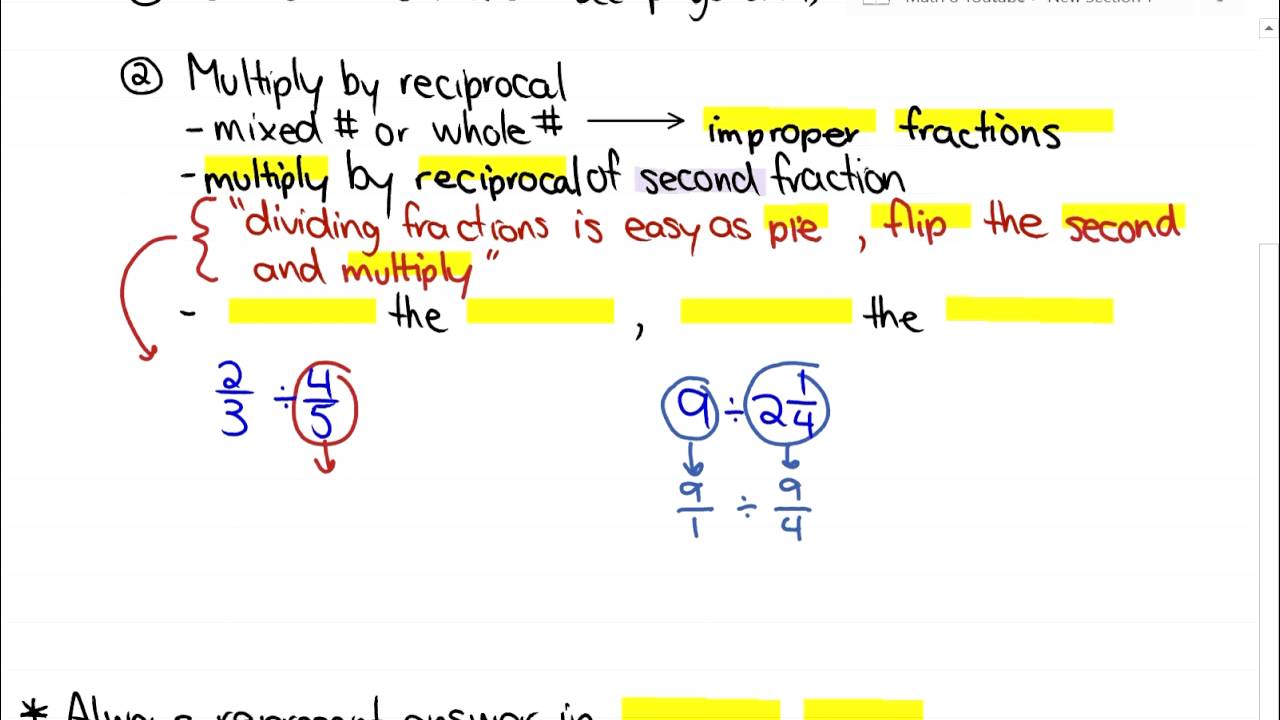 ② Multiply by reciprocal
- mixed # or whole # → improper fractions
- multiply by reciprocal of second fraction
"dividing fractions is easy as pie, flip the second
and multiply"
- the , the
2/3 ÷ 4/5
9 ÷ 2 1/4
9/1 ÷ 9/4
* answer in